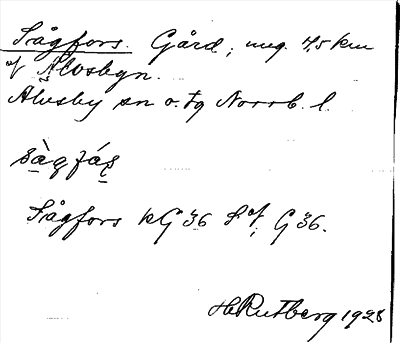 Sågfors. Gård, ung. 7,5 km
af Älvsbyn.
Älvsby sn o. tg Norrb. l.
sàgfás
Sågfors kG 36 S of, G 36.
H Rutberg 1928